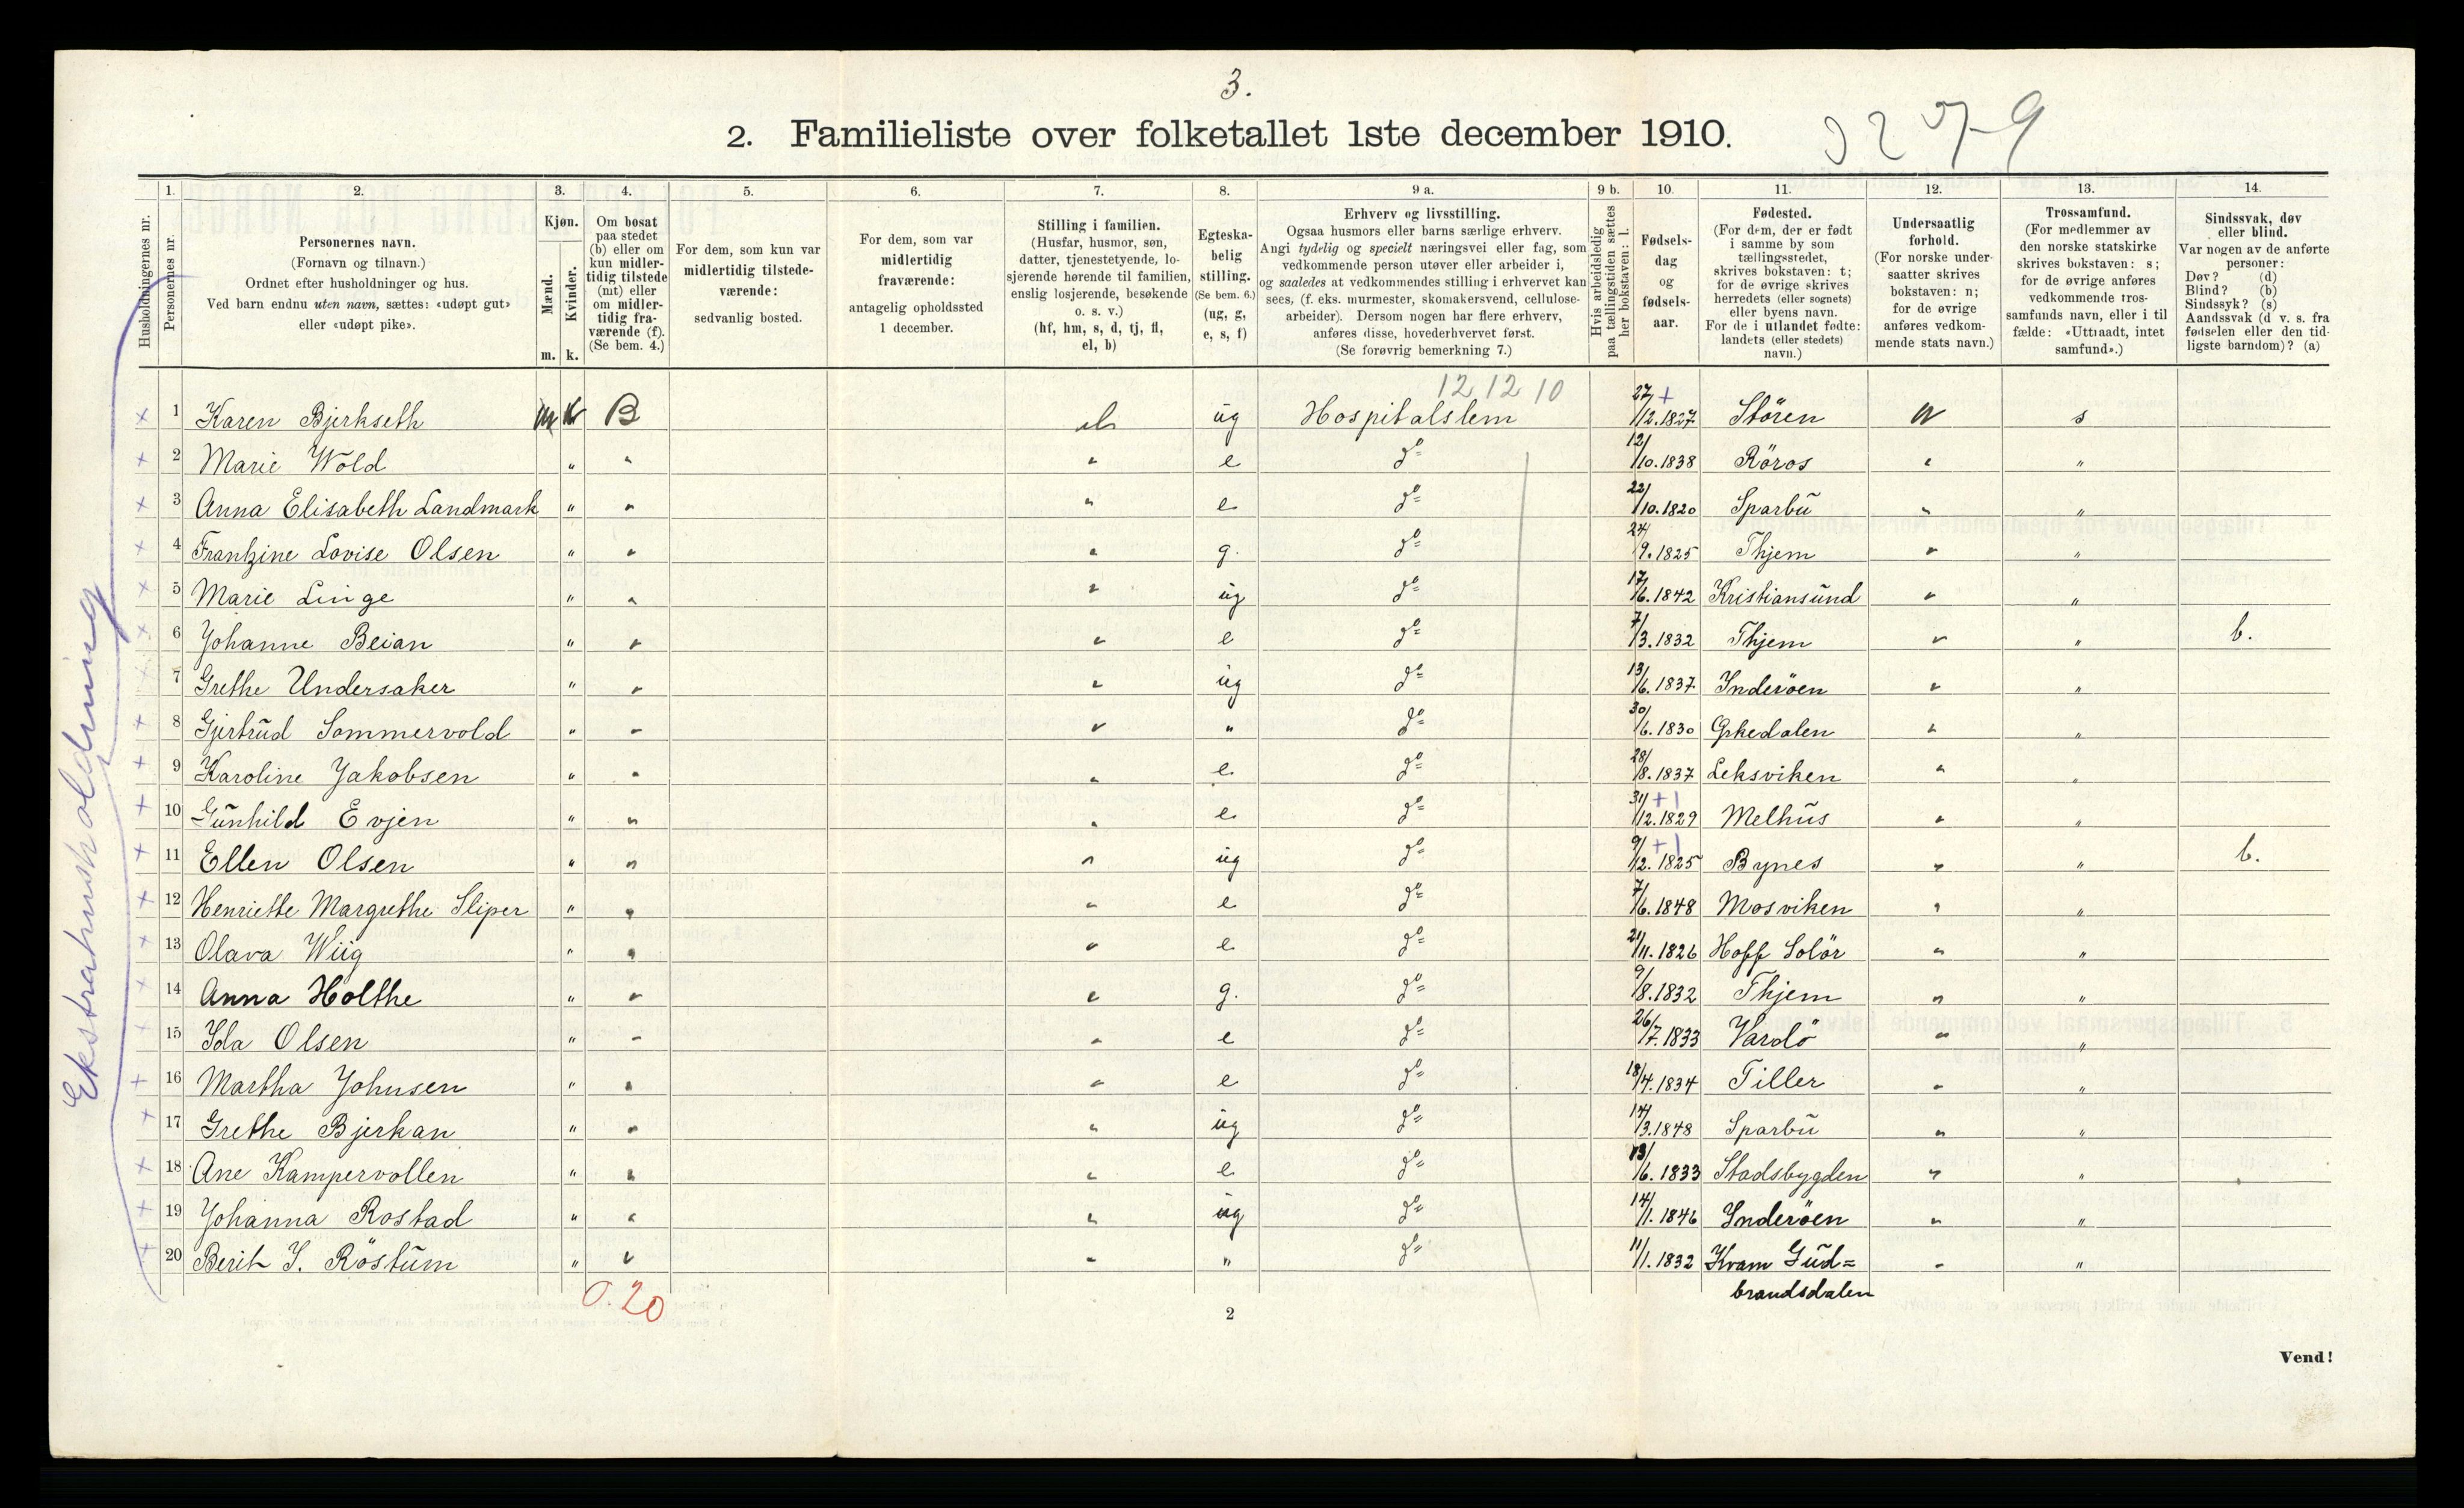 3.
2. Familieliste over folketallet 1ste december 1910.
Husholdningernes nr.
1. Personernes nr.
2. Personernes navn. (Fornavn og tilnavn.) Ordnet efter husholdninger og hus. Ved barn endnu uten navn, sættes: «udøpt gut» eller «udøpt pike».
3. Kjøn. Mænd. m. Kvinder. k.
4. Om bosat paa stedet (b) eller om kun midlertidig tilstede (mt) eller om midlertidig fraværende (f). (Se bem. 4.)
5. For dem, som kun var midlertidig tilstedeværende: sedvanlig bosted.
6. For dem, som var midlertidig fraværende: antagelig opholdssted 1 december.
7. Stilling i familien. (Husfar, husmor, søn, datter, tjenestetyende, losjerende hørende til familien, enslig losjerende, besøkende o. s. v.) (hf, hm, s, d, tj, fl, el, b)
8. Egteskabelig stilling. (Se bem. 6.) (ug, g, e, s, f)
9 a. Erhverv og livsstilling. Ogsaa husmors eller barns særlige erhverv. Angi tydelig og specielt næringsvei eller fag, som vedkommende person utøver eller arbeider i, og saaledes at vedkommendes stilling i erhvervet kan sees, (f. eks. murmester, skomakersvend, cellulosearbeider). Dersom nogen har flere erhverv, anføres disse, hovederhvervet først. (Se forøvrig bemerkning 7.)
9 b. Hvis arbeidsledig paa tællingstiden sættes her bokstaven: l.
10. Fødselsdag og fødselsaar.
11. Fødested. (For dem, der er født i samme by som tællingsstedet, skrives bokstaven: t; for de øvrige skrives herredets (eller sognets) eller byens navn. For de i utlandet fødte: landets (eller stedets) navn.)
12. Undersaatlig forhold. (For norske undersaatter skrives bokstaven: n; for de øvrige anføres vedkommende stats navn.)
13. Trossamfund. (For medlemmer av den norske statskirke skrives bokstaven: s; for de øvrige anføres vedkommende trossamfunds navn, eller i tilfælde: «Uttraadt, intet samfund».)
14. Sindssvak, døv eller blind. Var nogen av de anførte personer: Døv? (d) Blind? (b) Sindssyk? (s) Aandssvak (d v. s. fra fødselen eller den tidligste barndom)? (a)
Ekstrahusholdning
12 12 10
1 Karen Bjerkseth k B el ug Hospitalslem 27/12.1827 Stören n s
2 Marie Wold " " " e do 12/10.1838 Röros " "
3 Anna Elisabeth Landmark " " " e do 22/10.1820 Sparbu " "
4 Frantzine Lovise Olsen " " " g. do 24/9.1825 Thjem " "
5 Marie Linge " " " ug do 17/6.1842 Kristiansund " "
6 Johanne Beian " " " e do 7/3.1832 Thjem " " b.
7 Grethe Undersaker " " " ug do 13/6.1837 Inderöen " "
8 Gjertrud Sommervold " " " " do 30/6.1830 Orkedalen " "
9 Karoline Jakobsen " " " e do 28/8.1837 Leksviken " "
10 Gunhild Evjen " " " e do 31/12.1829 Melhus " "
11 Ellen Olsen " " " ug do 9/12.1825 Bynes " " b.
12 Henriette Margrethe Sliper " " " e do 7/6.1848 Mosviken " "
13 Olava Wiig " " " e do 21/11.1826 Hoff Solör " "
14 Anna Holthe " " " g. do 9/8.1832 Thjem " "
15 Ida Olsen " " " e do 26/7.1833 Vardö " "
16 Martha Johnsen " " " e do 18/4.1834 Tiller " "
17 Grethe Bjerkan " " " ug do 14/3.1848 Sparbu " "
18 Ane Kampervollen " " " e do 13/6.1833 Stadsbygden " "
19 Johanna Rostad " " " ug do 14/1.1846 Inderöen " "
20 Berit J. Röstum " " " " do 11/1.1832 Kvam Gud=
brandsdalen " "
0.20
2
Vend!